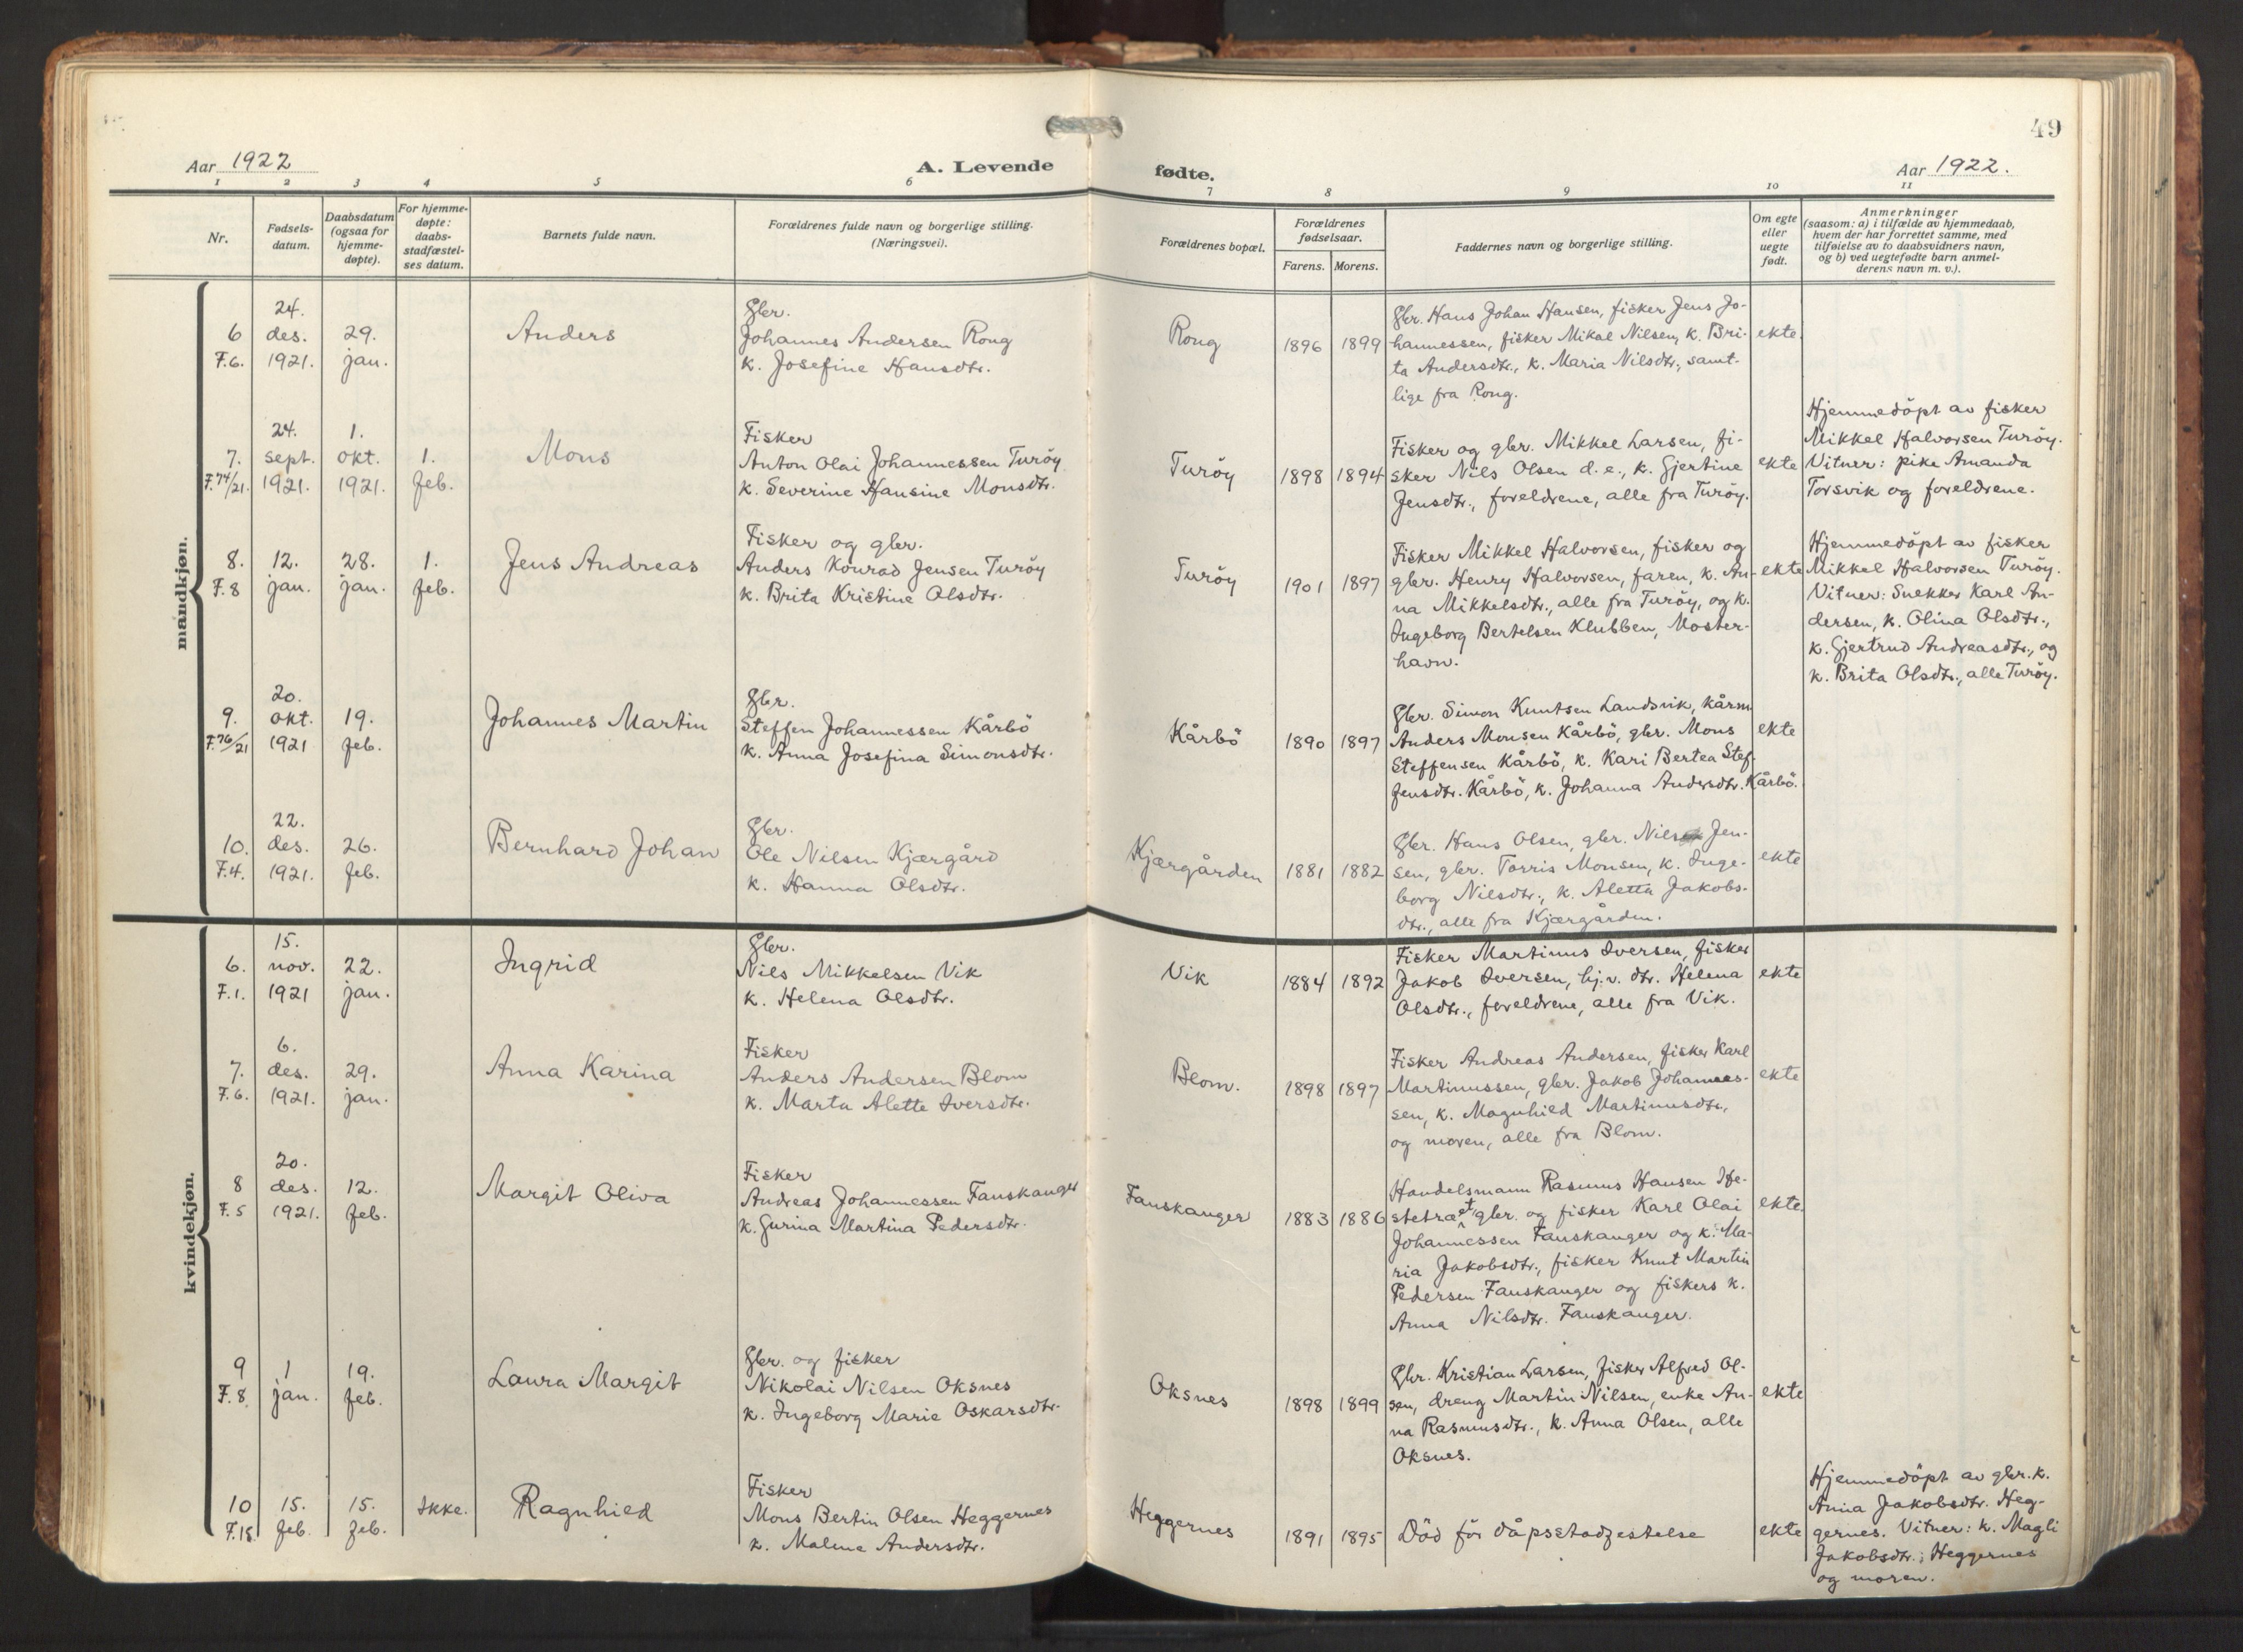 49
Aar 1922
A. Levende
fødte.
Aar 1922.
1 2 3 4 5 6 7 8 9 10 11
Nr.
Fødsels-
datum.
Daabsdatum
(ogsaa for
hjemme-
døpte).
For hjemme-
døpte:
daabs-
stadfæstel-
ses datum.
Barnets fulde navn.
Forældrenes fulde navn og borgerlige stilling.
(Næringsvei).
Forældrenes bopæl.
Forældrenes
fødselsaar.
Farens. Morens.
Faddernes navn og borgerlige stilling.
Om egte
eller
uegte
født.
Anmerkninger
(saasom: a) i tilfælde av hjemmedaab,
hvem der har forrettet samme, med
tilføielse av to daabsvidners navn,
og b) ved uegtefødte barn anmel-
derens navn m. v.).
mandkjøn.
6
F.6.
24.
des.
1921.
29.
jan.
Anders
Gbr.
Johannes Andersen Rong
k. Josefine Hansdtr.
Rong
1896 1899
Gbr. Hans Johan Hansen, fisker Jens Jo-
hannessen, fisker Mikal Nilsen, k. Bri-
ta Andersdtr., k. Maria Nilsdtr., samt-
lige fra Rong.
ekte.
7.
F.74/21.
24.
sept.
1921.
1.
okt.
1921.
1.
feb.
Mons
Fisker
Anton Olai Johannessen Turöy
k. Severine Hansine Monsdtr.
Turöy
1898 1894
Fisker og gbr. Mikkel Larsen, fi-
sker Nils Olsen d. e., k. Gjertine
Jensdtr., foreldrene, alle fra Turöy.
ekte
Hjemmedöpt av fisker
Mikkel Halvorsen Turöy.
Vitner: pike Amanda
Torsvik og foreldrene.
8.
F.8
12.
jan.
28.
jan.
1.
feb.
Jens Andreas
Fisker og gbr.
Anders Konrad Jensen Turöy
k. Brita Kristine Olsdtr.
Turöy
1901 1897
Fisker Mikkel Halvorsen, fisker og
gbr. Henry Halvorsen, faren, k. An-
na Mikkelsdtr., alle fra Turöy, og k.
Ingeborg Bertelsen Klubben, Moster-
havn.
ekte
Hjemmedöpt av fisker
Mikkel Halvorsen Turöy.
Vitner: Snekker Karl An-
dersen, k. Olina Olsdtr.,
k. Gjertrud Andreasdtr., og
k. Brita Olsdtr., alle Turöy.
9.
F.76/21
20.
okt.
1921
19.
feb.
Johannes Martin
Gbr.
Steffen Johannessen Kårbö
k. Anna Josefina Simonsdtr.
Kårbö
1890 1897
Gbr. Simon Knutsen Landsvik, kårm
Anders Monsen Kårbö, gbr. Mons
Steffensen Kårbö, k. Kari Bertea Stef-
fensdtr. Kårbö, k. Johanna Andersdtr. Kårbö.
ekte
10.
F.4.
22.
des.
1921.
26.
feb.
Bernhard Johan
Gbr.
Ole Nilsen Kjærgård
k. Hanna Olsdtr.
Kjærgården
1881 1882
Gbr. Hans Olsen, gbr. Nils Jen-
sen, gbr. Torris Monsen, k. Inge-
borg Nilsdtr., k. Aletta Jakobs-
dtr., alle fra Kjærgården.
ekte
kvindekjøn.
6.
F.1.
15.
nov.
1921
22.
jan.
Ingrid
Gbr.
Nils Mikkelsen Vik
k. Helena Olsdtr.
Vik
1884 1892
Fisker Martinus Iversen, fisker
Jakob Iversen, hj. v. dtr. Helena
Olsdtr., foreldrene, alle fra Vik.
ekte
7.
F.6.
6.
des.
1921.
29.
jan.
Anna Karina
Fisker
Anders Andersen Blom
k. Marta Alette Iversdtr.
Blom.
1898 1897
Fisker Andreas Andersen, fisker Karl
Martinussen, gbr. Jakob Johannes-
sen, k. Magnhild Martinusdtr.,
og moren, alle fra Blom.
ekte
8
F.5
20.
des.
1921.
12.
feb.
Margit Oliva
Fisker
Andreas Johannessen Fanskanger
k. Gurina Martina Pedersdtr.
Fanskanger
1883 1886
Handelsmann Rasmus Hansen He-
stetræet gbr. og fisker Karl Olai
Johannessen Fanskanger og k. Ma-
ria Jakobsdtr., fisker Knut Martin
Pedersen Fanskanger og fiskers k.
Anna Nilsdtr. Fanskanger.
ekte.
9
F.8.
1
jan.
19.
feb.
Laura Margit
Gbr. og fisker
Nikolai Nilsen Oksnes
k. Ingeborg Marie Oskarsdtr.
Oksnes
1898 1899
Gbr. Kristian Larsen, fisker Alfred Ol-
sen, dreng Martin Nilsen, enke An-
na Rasmusdtr., k. Anna Olsen, alle
Oksnes.
ekte
10
F.15
15.
feb.
15.
feb.
Ikke.
Ragnhild
Fisker
Mons Bertin Olsen Heggernes
k. Malene Andersdtr.
Heggernes
1891 1895
Död för dåpsstadfestelse
ekte
Hjemmedöpt av gbr. k.
Anna Jakobsdtr. Heg-
gernes. Vitner: k. Magli
Jakobsdtr., Heggernes
og moren.